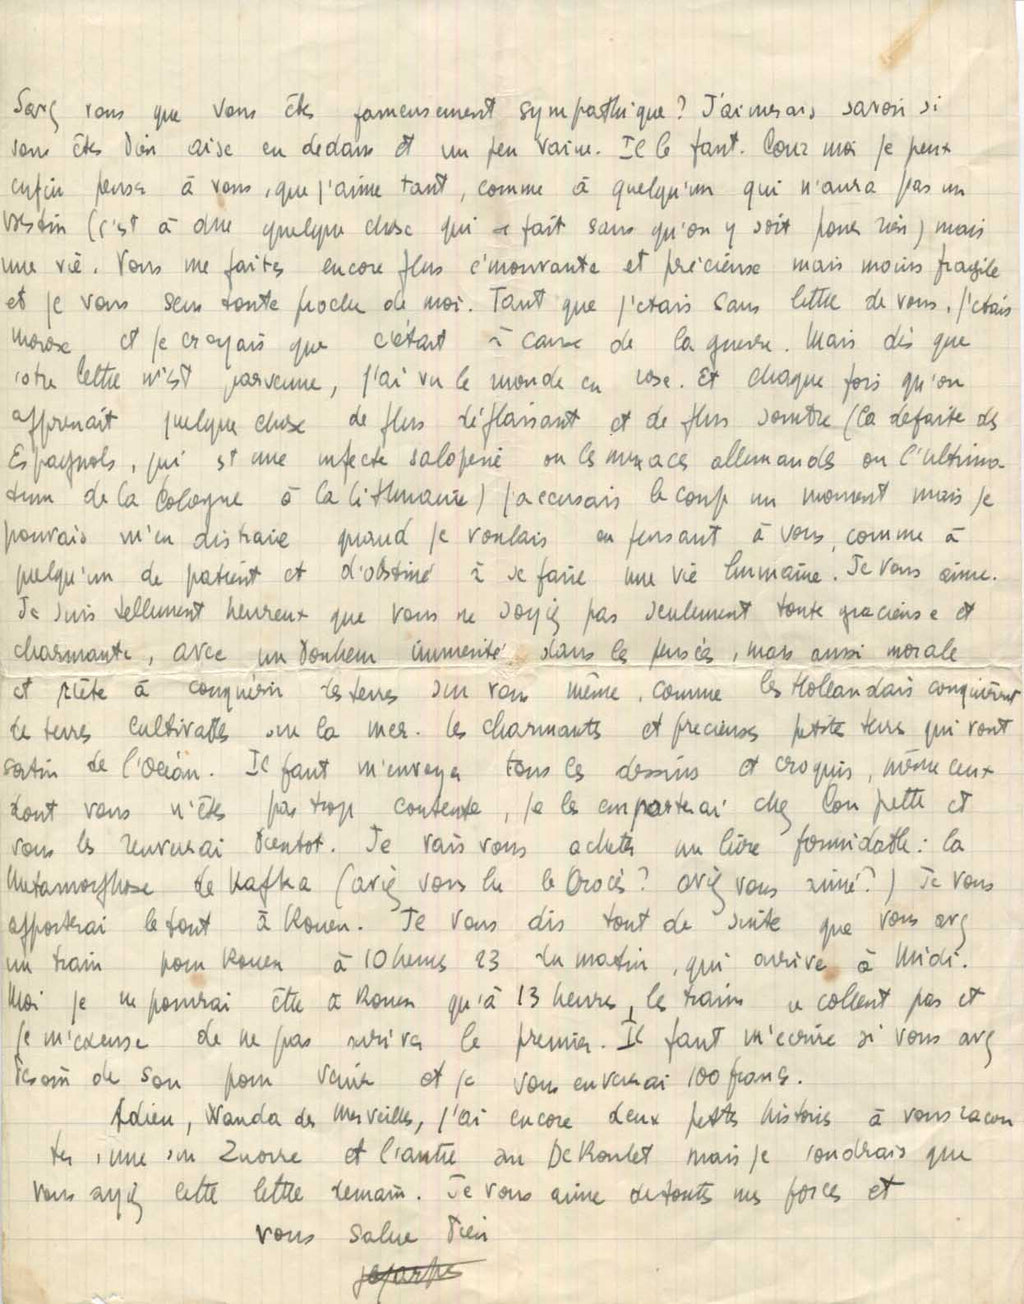 Savez vous que vous êtes fameusement sympathique? J'aimerais savoir si
vous êtes bien aise en dedans et un peu vaine. Il le faut. Pour moi je peux
enfin penser à vous, que j'aime tant, comme à quelqu'un qui n'aura pas un
destin (c'est à dire quelque chose qui se fait sans qu'on y soit pour rien) mais
une vie. Vous me faites encore plus émouvante et précieuse mais moins fragile
et je vous sens toute proche de moi. Tant que j'étais sans lettre de vous, j'étais
morose et je croyais que c'était à cause de la guerre. Mais dès que
votre lettre m'est parvenue, j'ai vu le monde en rose. Et chaque fois qu'on
apprenait quelque chose de plus déplaisant et de plus sombre (la défaite des
Espagnols, qui est une infecte saloperie ou les menaces allemandes ou l'ultima
tum de la Pologne à la Lithuanie) j'accusais le coup un moment mais je
pouvais m'en distraire quand je voulais en pensant à vous, comme à
quelqu'un de patient et d'obstiné à se faire une vie humaine. Je vous aime.
Je suis tellement heureux que vous ne soyiez pas seulement toute gracieuse et
charmante, avec un bonheur immérité dans les pensées, mais aussi morale
et prête à conquérir des terres sur vous même, comme les Hollandais conquièrent
des terres cultivables sur la mer. Les charmantes et précieuses petites terres qui vont
sortir de l'Océan. Il faut m'envoyer tous les dessins et croquis, même ceux
dont vous n'êtes pas trop contente, je les emporterai chez Poupette et
vous les renverrai bientot. Je vais vous acheter un livre formidable: la
Metamorphose de Kafka (aviez vous lu le Procès? aviez vous aimé?) Je vous
apporterai le tout à Rouen. Je vous dis tout de suite que vous avez
un train pour Rouen à 10 heures 23 du matin, qui arrive à Midi.
Moi je ne pourrai être à Rouen qu'à 13 heures, les trains ne collent pas et
je m'excuse de ne pas arriver le premier. Il faut m'écrire si vous avez
besoin de sou pour venir et je vous enverrai 100 francs.
Adieu, Wanda des Merveilles, j'ai encore deux petites histoires à vous racon
ter, une sur Zuorre et l'autre sur De Roulet mais je voudrais que
vous ayiez cette lettre demain. Je vous aime de toutes mes forces et
vous salue bien